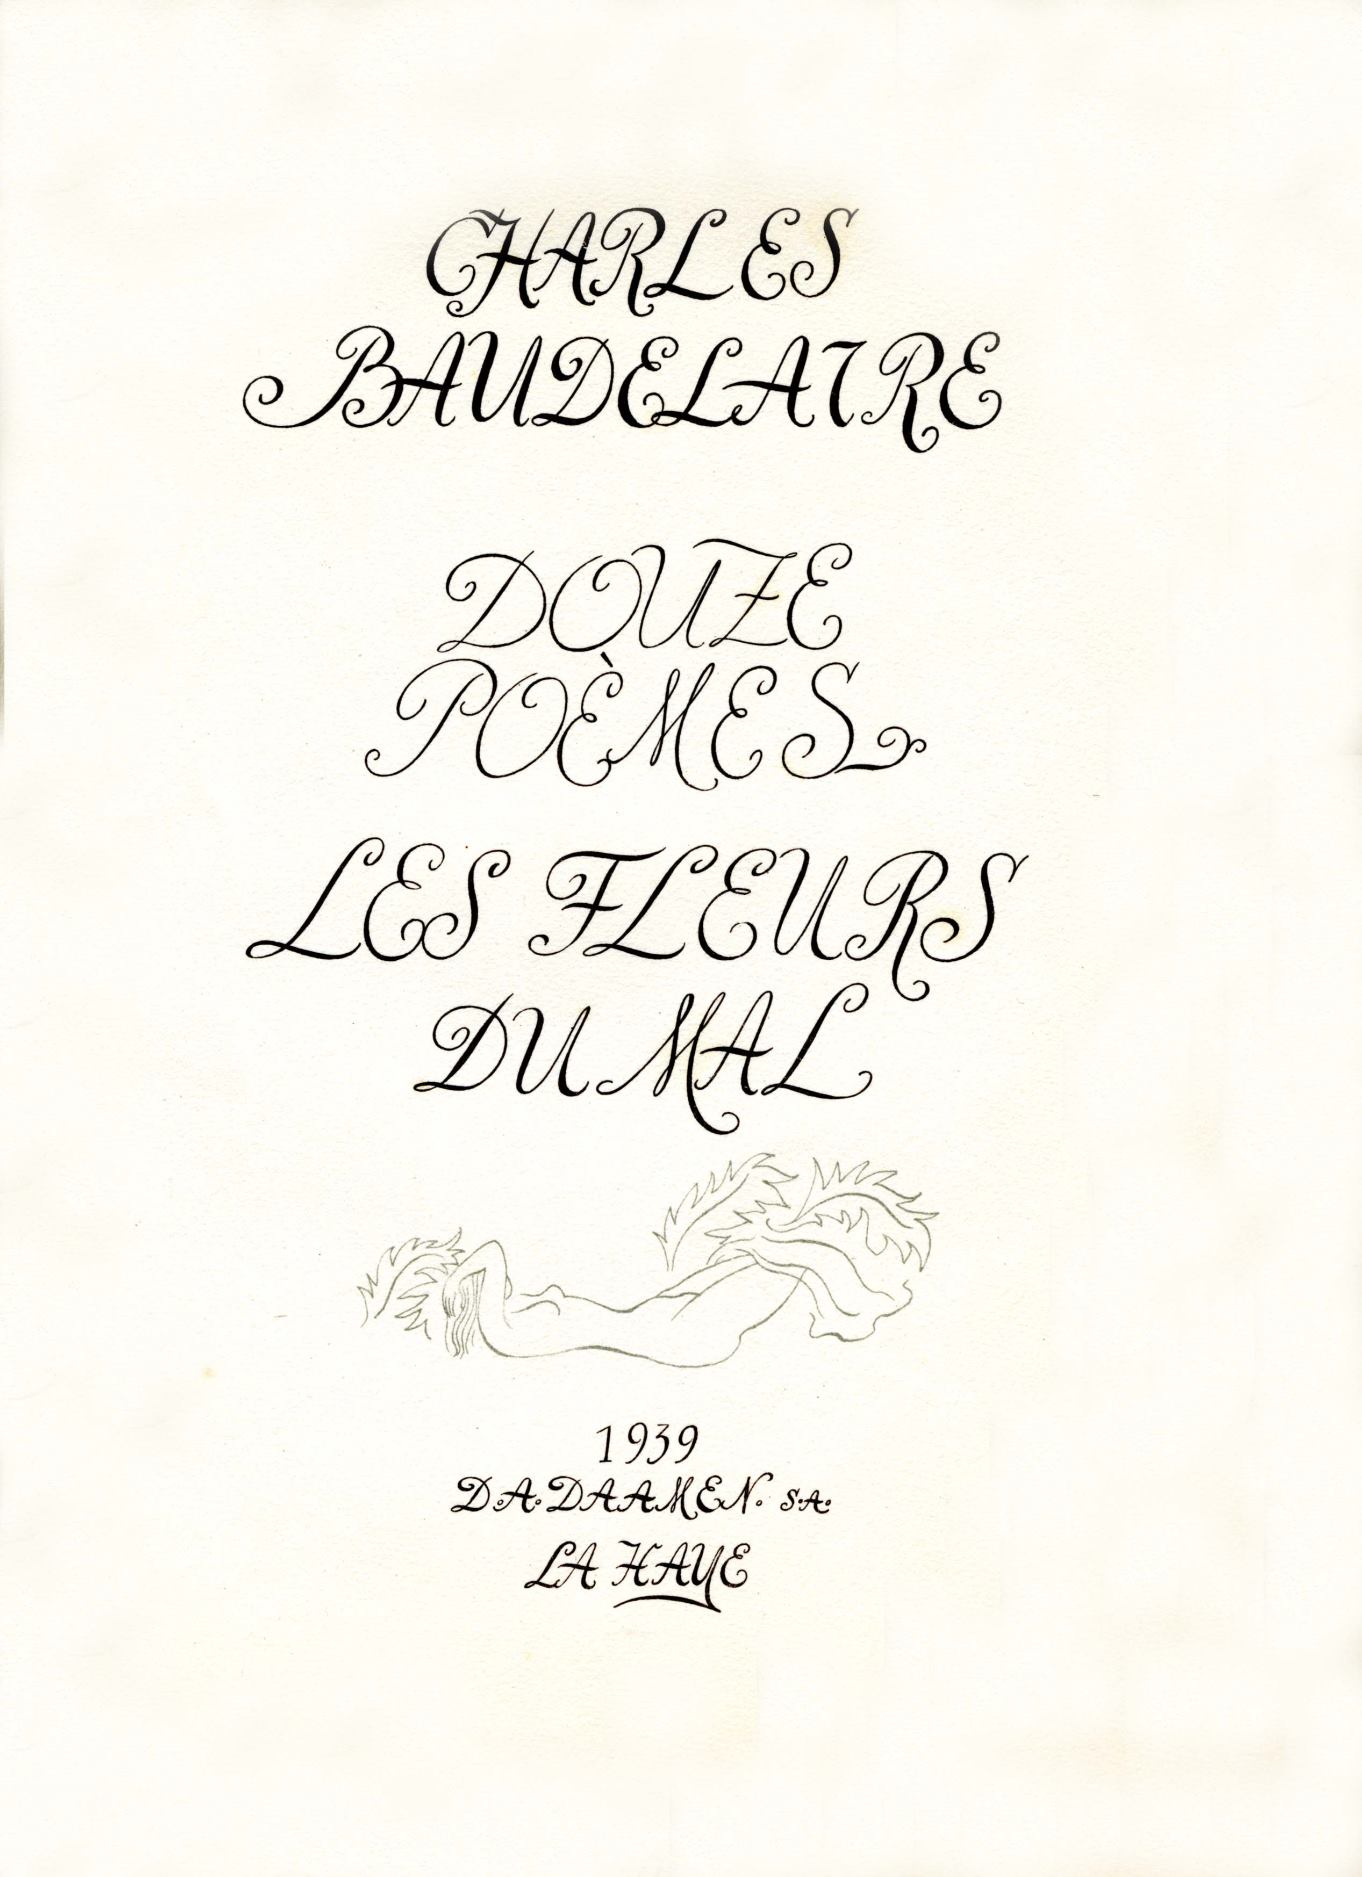 CHARLES
BAUDELAIRE
DOUZE
POÈMES
LES FLEURS
DU MAL
1939
D.A. DAAMEN. S.A.
LA HAYE